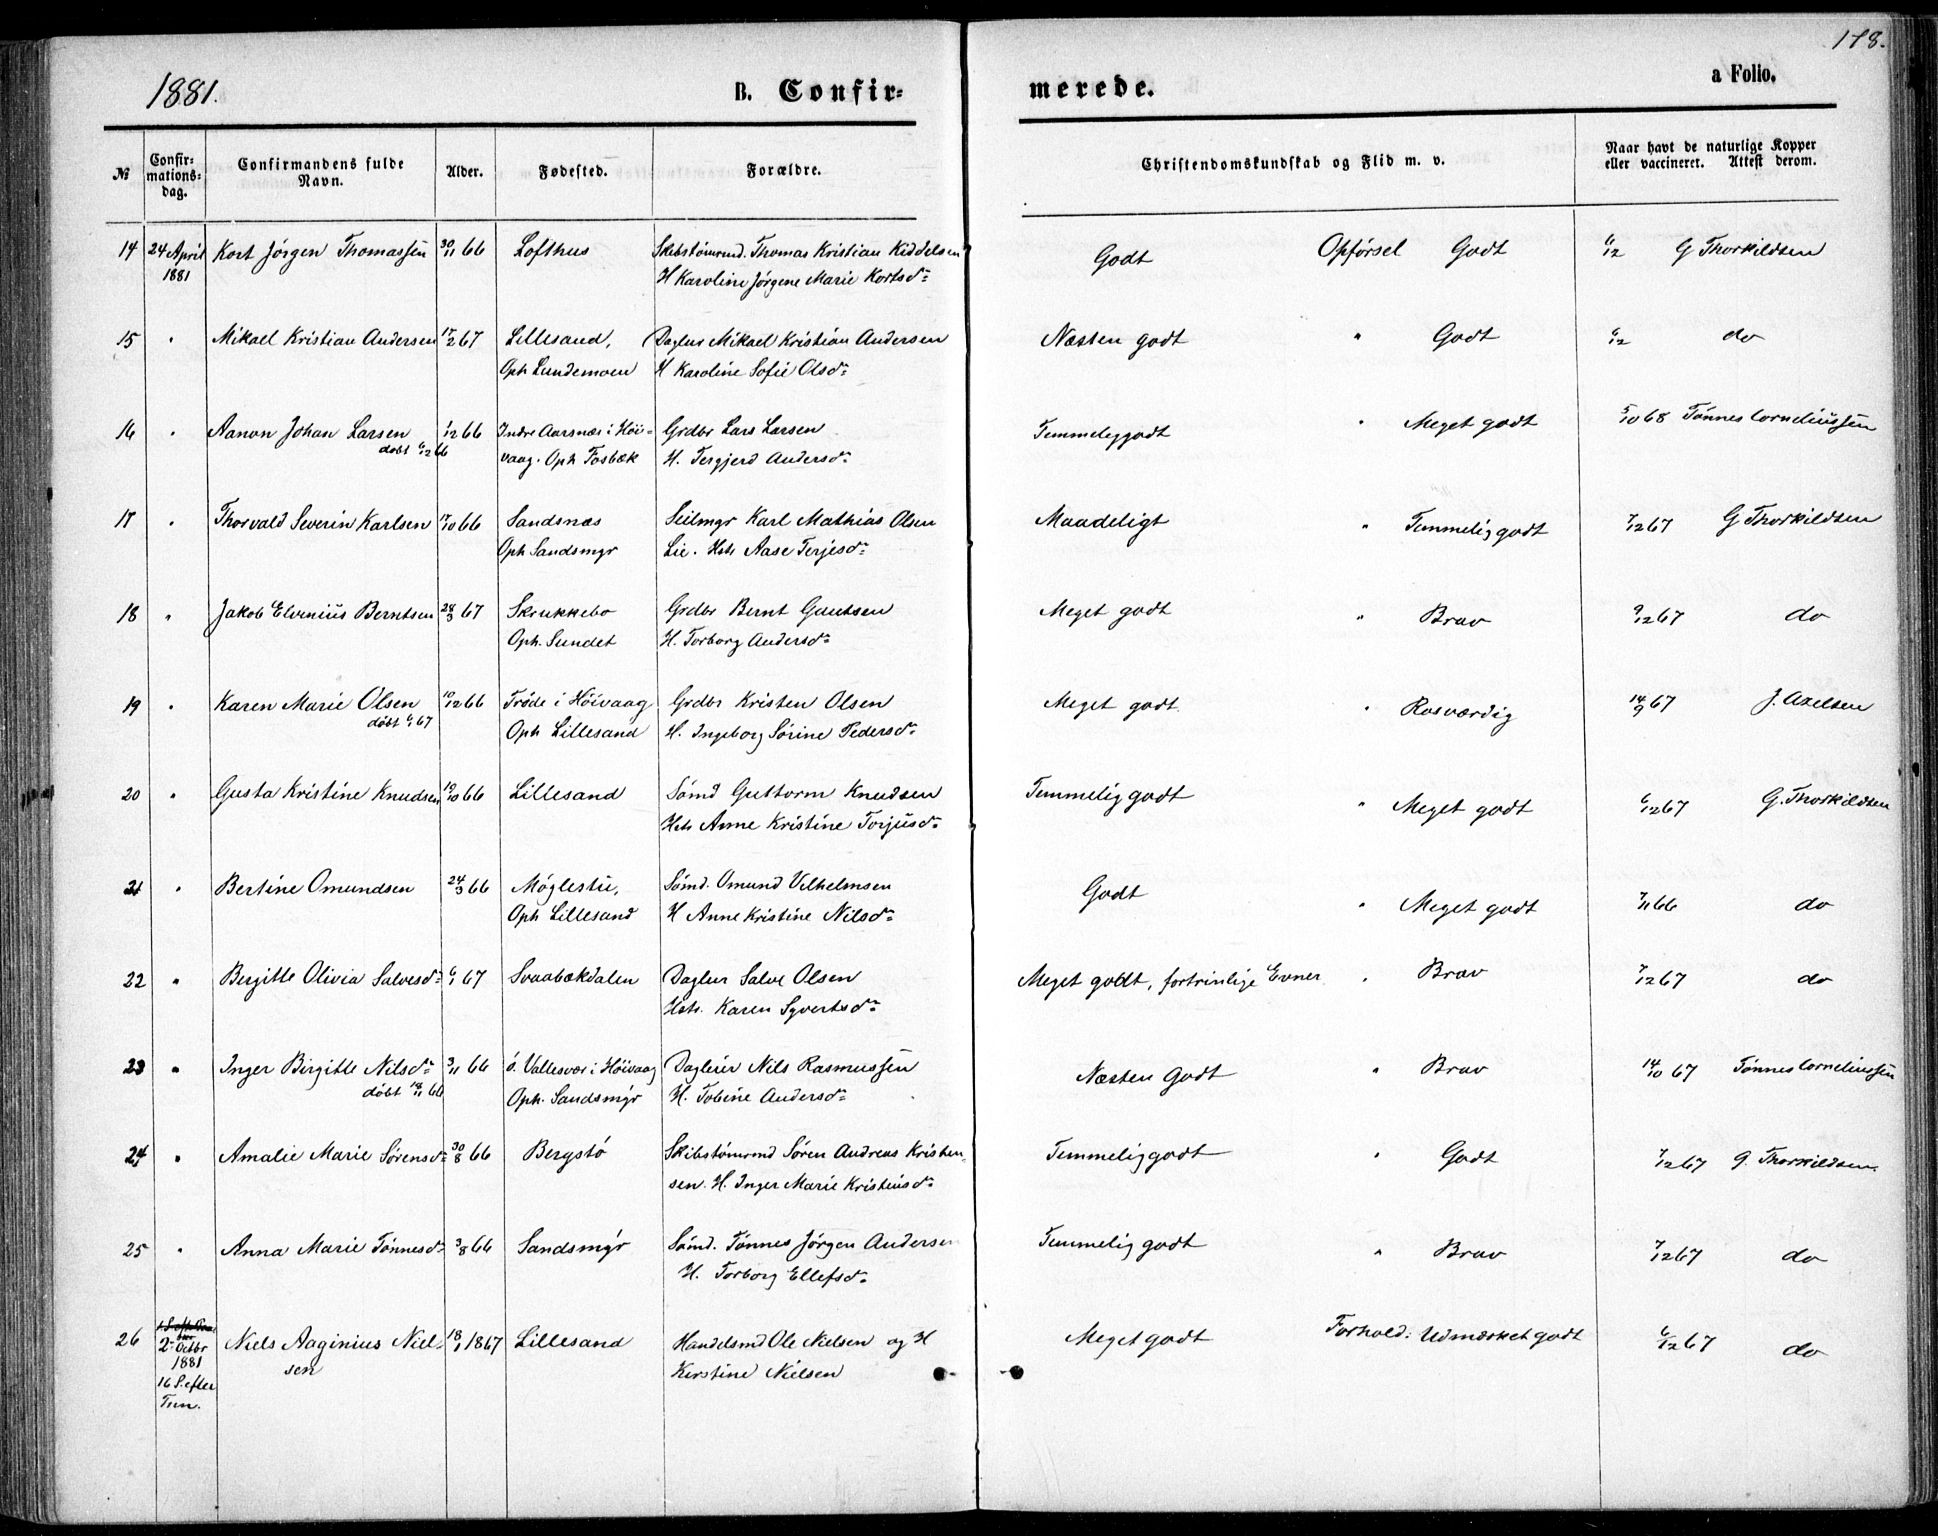 1881.
B. Confir-
merede.
a Folio.
178.
№
Confir-
mations-
dag.
Confirmandens fulde
Navn.
Alder.
Fødested.
Forældre.
Christendomskundskab og Flid m. v.
Naar havt de naturlige Kopper
eller vaccineret. Attest derom.
14 24 April Kort Jörgen Thomassen 30/11 66 Lofthus Skibstömmd. Thomas Kristian Kiddelsen Godt Opförsel Godt 6/12 G Thorkildsen
1881 H Karoline Jörgene Marie Kortsdr
15 " Mikael Kristian Andersen 17/2 67 Lillesand, Daglnr Mikael Kristian Andersen Næsten godt " Godt 6/12 do
Oph Lundemoen H Karoline Sofie Olsdr
16 " Aanon Johan Larsen 1/12 66 Indre Aarsnæs i Höi- Grdbr Lars Larsen Temmeliggodt " Meget godt 5/10 68 Tönnes Corneliussen
döbt 6/12 66 vaag. Oph Fosbæk H. Tergjerd Andersdr
17 " Thorvald Severin Karlsen 17/10 66 Sandsnæs Seilmgr Karl Mathias Olsen Maadeligt " Temmelig godt 7/12 67 G Thorkildsen
Oph Sandsmyr Lie. Hstr Aase Terjesdr
18 " Jakob Elvenius Berntsen 28/3 67 Skrukkebo Grdbr Bernt Gautsen Meget godt " Brav 9/12 67 do
Oph. Sundet H. Torborg Andersdr
19 " Karen Marie Olsen 10/12 66 Tröde i Höivaag Grdbr Kristen Olsen Meget godt " Rosværdig 14/9 67 J. Axelsen
döbt 6/1 67 Oph Lillesand H. Ingeborg Sörine Pedersdr
20 " Gusta Kristine Knudsen 19/10 66 Lillesand Sömd Guttorm Knudsen Temmelig godt " Meget godt 6/12 67 G. Thorkildsen
Hstr Anne Kristine Torjusdr
21 " Bertine Omundsen 24/3 66 Möglestu, Sömd. Omund Vilhelmsen Godt " Meget godt 7/11 66 do
Oph Lillesand H Anne Kristine Nilsdr
22 " Birgitte Olivia Salvesdr 6/1 67 Svaabækdalen Daglnr Salve Olsen Meget godt, fortrinlige Evner " Brav 7/12 67 do
Hstr. Karen Syvertsdr
23 " Inger Birgitte Nilsdr 3/11 66 ö. Vallesvær i Höivaag Dagleier Nils Rasmussen Næsten Godt " Brav 14/10 67 Tönnes Corneliussen
döbt 18/11 66 Oph. Sandsmyr H. Tobine Andersdr
24 " Amalie Marie Sörensdr 30/8 66 Bergstö Skibstömmd Sören Andreas Kristen- Temmeliggodt " Godt 7/12 67 G. Thorkildsen
sen. H. Inger Marie Kristensdr
25 " Anna Marie Tönnesdr 3/8 66 Sandsmyr Sömd. Tönnes Jörgen Andersen Temmelig godt " Brav 7/12 67 do
H. Torborg Ellefsdr
26 2. Octbr Niels Aaginius Niel- 18/1 1867 Lillesand Handelsmd Ole Nielsen og H Meget godt Forhold: Udmærket godt 6/12 67 do
1881 sen Kirstine Nielsen
16 S. efter
Trin.